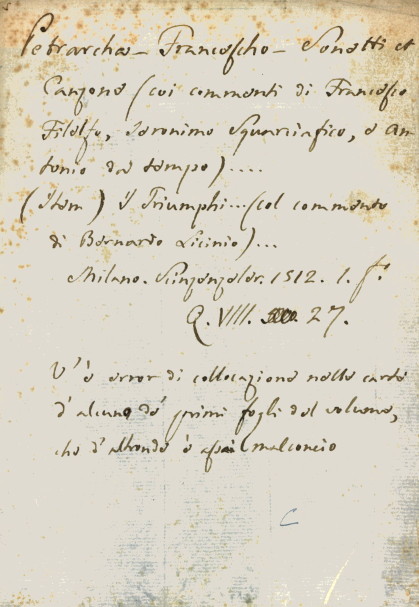 Petrarcha - Francescho - Sonetti et
Canzone (coi commenti di Francesco
Filelfo, Jeronimo Squarciafico, e An-
tonio da tempo)....
(item) i Triumphi...(col commento
di Bernardo Licinio)...
Milano. Scinzenzeler. 1512. 1. f.º
Q. VIII. 27.
V'è error di collocazione nelle carte
d'alcuno de' primi fogli del volume,
che d'altronde è assai malconcio
C